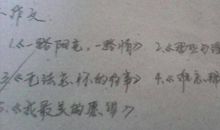 一作文
1.《一路阳光，一路情》 2.《
3《无法忘怀的往事》 4.《难忘
5.《我最美的愿望》